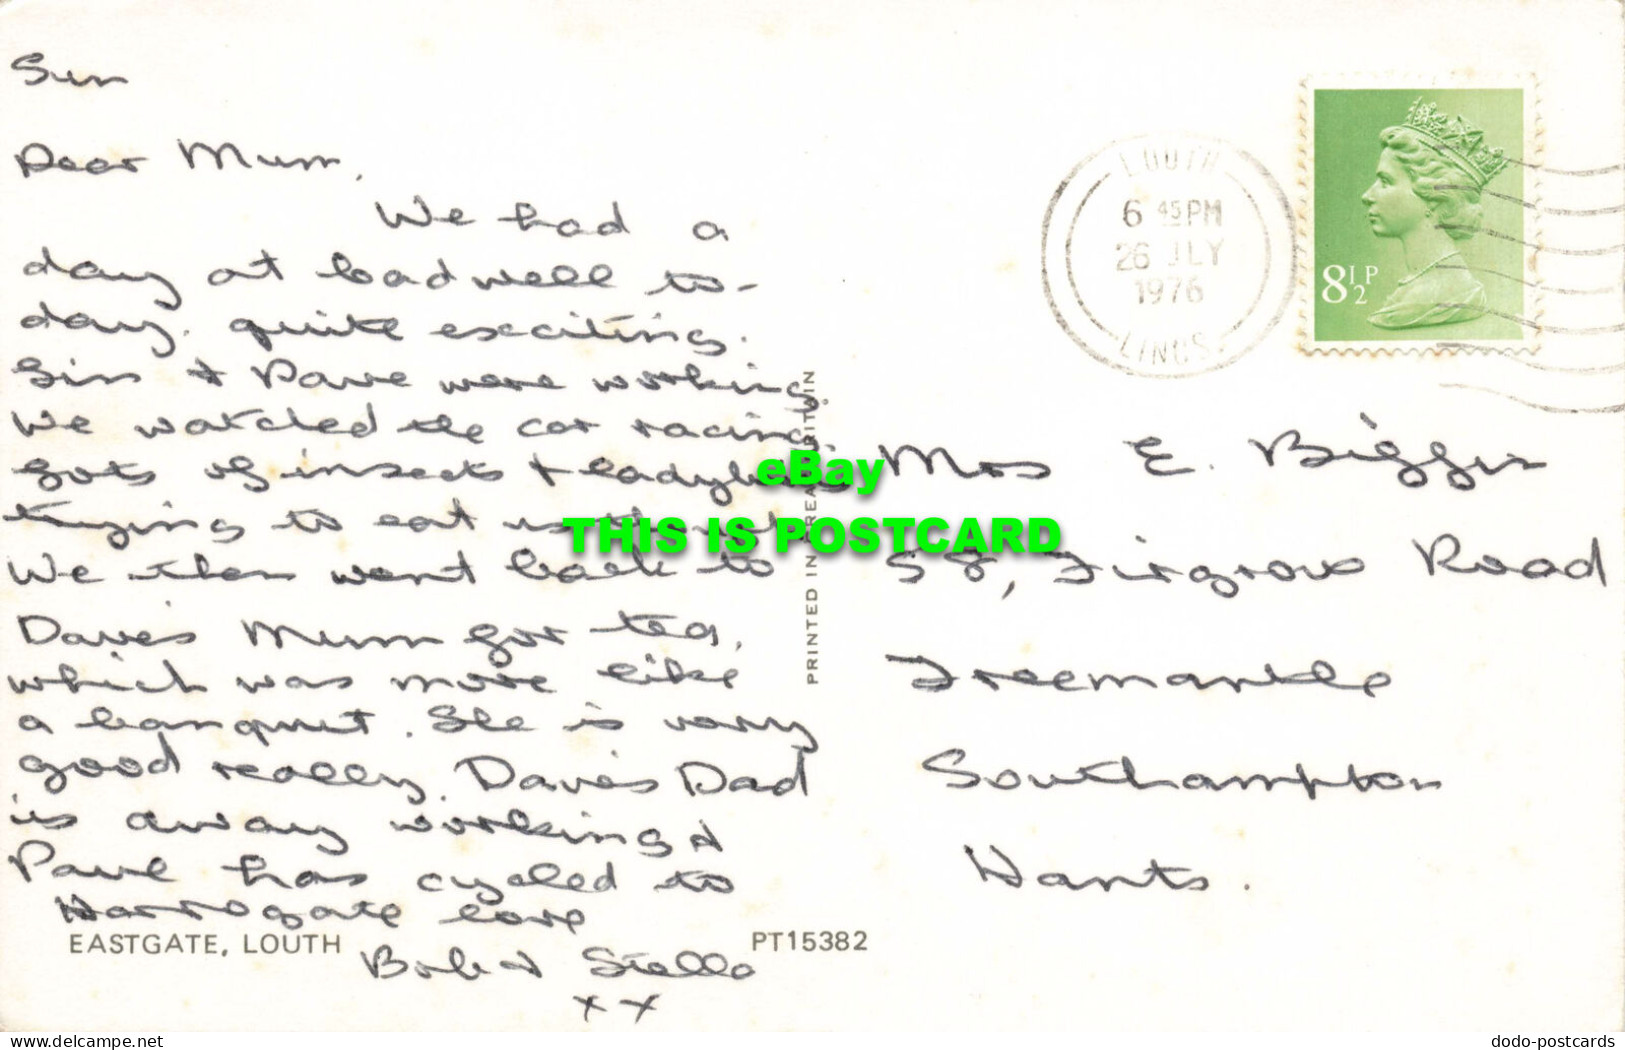 Sun
Dear Mum,
We had a
day at Cadwell to-
day. quite exciting.
Sim & Dave were working
We watched the car racing.
lots of insects & ladybirds
trying to eat us though
We then went back to
Dave's Mum for tea,
which was more like
a banquet. She is very
good really. Dave's Dad
is away working &
Paul has cycled to
Harrogate love
Bob & Stella
x x
EASTGATE, LOUTH
PT15382
PRINTED IN GREAT BRITAIN
LOUTH
6 45 PM
26 JLY
1976
LINCS.
8½P
Mrs E. Biggs
58, Firgrove Road
Freemantle
Southampton
Hants.
eBay
THIS IS POSTCARD
delcampe.net
dodo-postcards